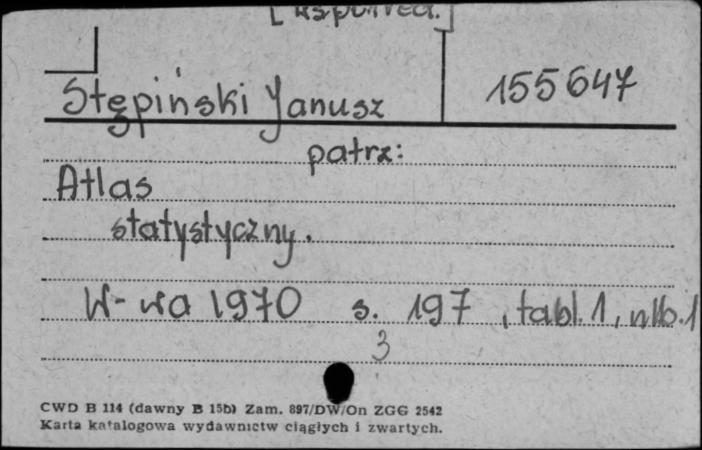 [współred.]
Stępiński Janusz 155647
patrz:
Atlas
statystyczny.
W-wa 1970 s. 197, tabl. 1, nlb. 1
3
CWD B 114 (dawny B 15b) Zam. 897/DW/On ZGG 2542
Karta katalogowa wydawnictw ciągłych i zwartych.